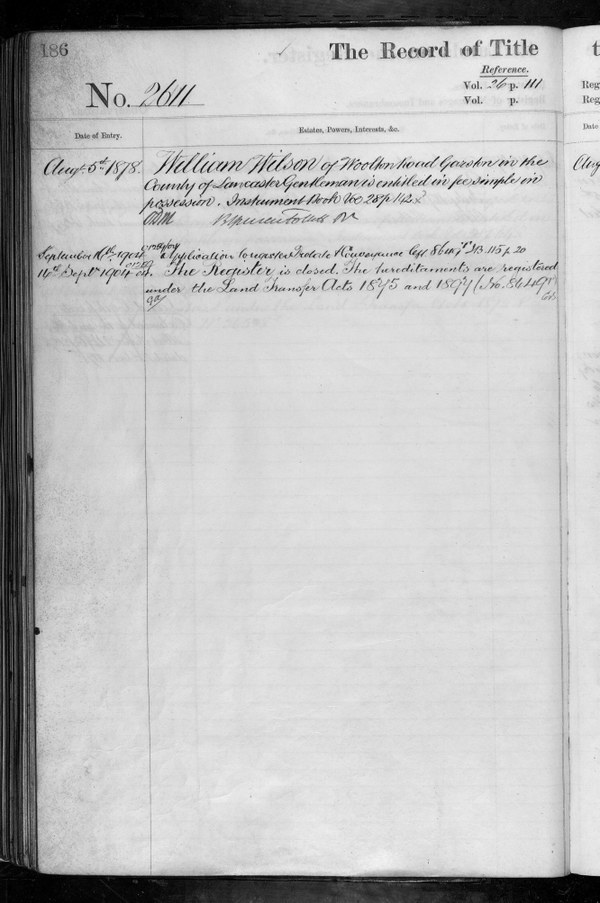 186
The Record of Title
Reference.
No. 2611
Vol. 26 p. 111
Vol. p.
Date of Entry.
Estates, Powers, Interests, &c.
Augt. 5th 1878.
William Wilson of Woolton Road Garston in the
County of Lancaster Gentleman is entitled in fee simple in
possession. Instrument Book Vol 28 p 142
September 16th 1904
Application to register Probate & Conveyance p 20
14th Septr. 1904
The Register is closed. The hereditaments are registered
under the Land Transfer Acts 1875 and 1897 (No.
t
Reg
Reg
Date
Aug